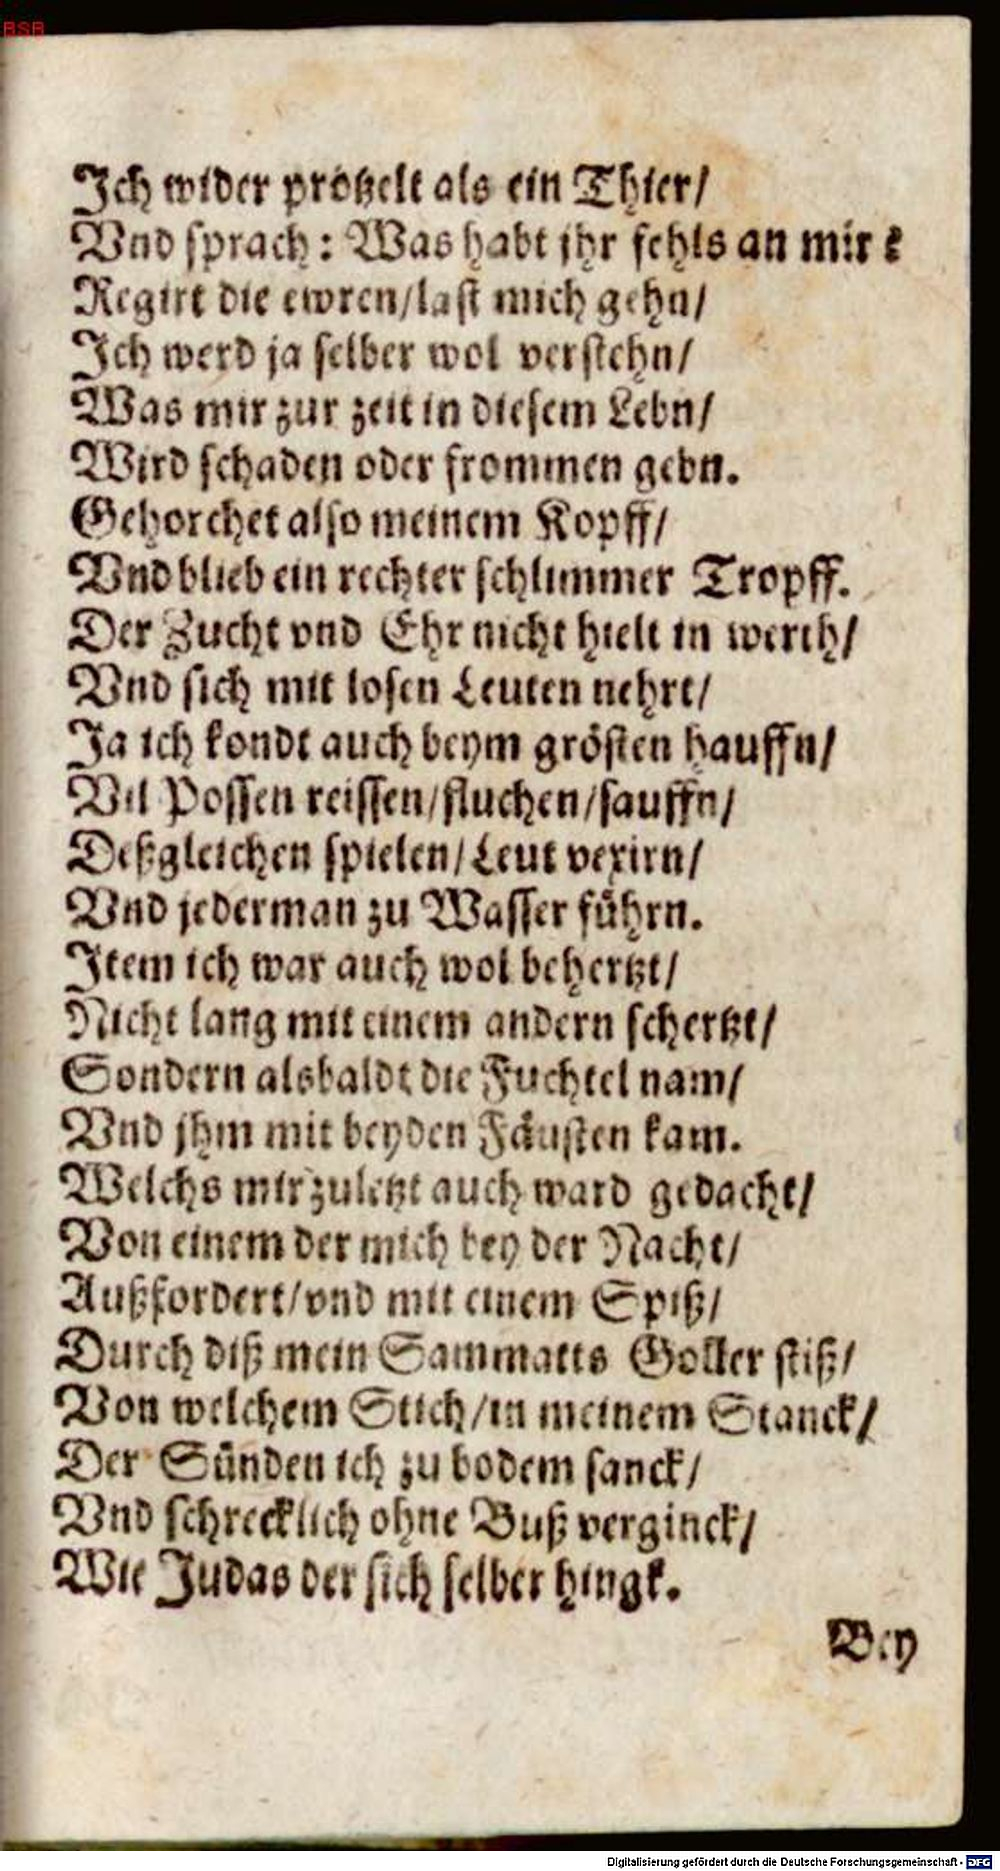 BSB
Ich wider protzelt als ein Thier/
Vnd sprach: Was habt jhr fehls an mir?
Regirt die ewren/last mich gehn/
Ich werd ja selber wol verstehn/
Was mir zur zeit in diesem Lebn/
Wird schaden oder frommen gebn.
Gehorchet also meinem Kopff/
Vnd blieb ein rechter schlimmer Tropff.
Der Zucht vnd Ehr nicht hielt in werth/
Vnd sich mit losen Leuten nehrt/
Ja ich kondt auch beym grösten hauffn/
Vil Possen reissen/fluchen/sauffn/
Deßgleichen spielen/Leut vexirn/
Vnd jederman zu Wasser führn.
Item ich war auch wol behertzt/
Nicht lang mit einem andern schertzt/
Sondern alsbaldt die Fuchtel nam/
Vnd jhm mit beyden Fäusten kam.
Welchs mir zuletzt auch ward gedacht/
Von einem der mich bey der Nacht/
Außfordert/vnd mit einem Spiß/
Durch diß mein Sammatts Goller stiß/
Von welchem Stich/in meinem Stanck/
Der Sünden ich zu bodem sanck/
Vnd schrecklich ohne Buß verginck/
Wie Judas der sich selber hingk.
Bey
Digitalisierung gefördert durch die Deutsche Forschungsgemeinschaft - DFG